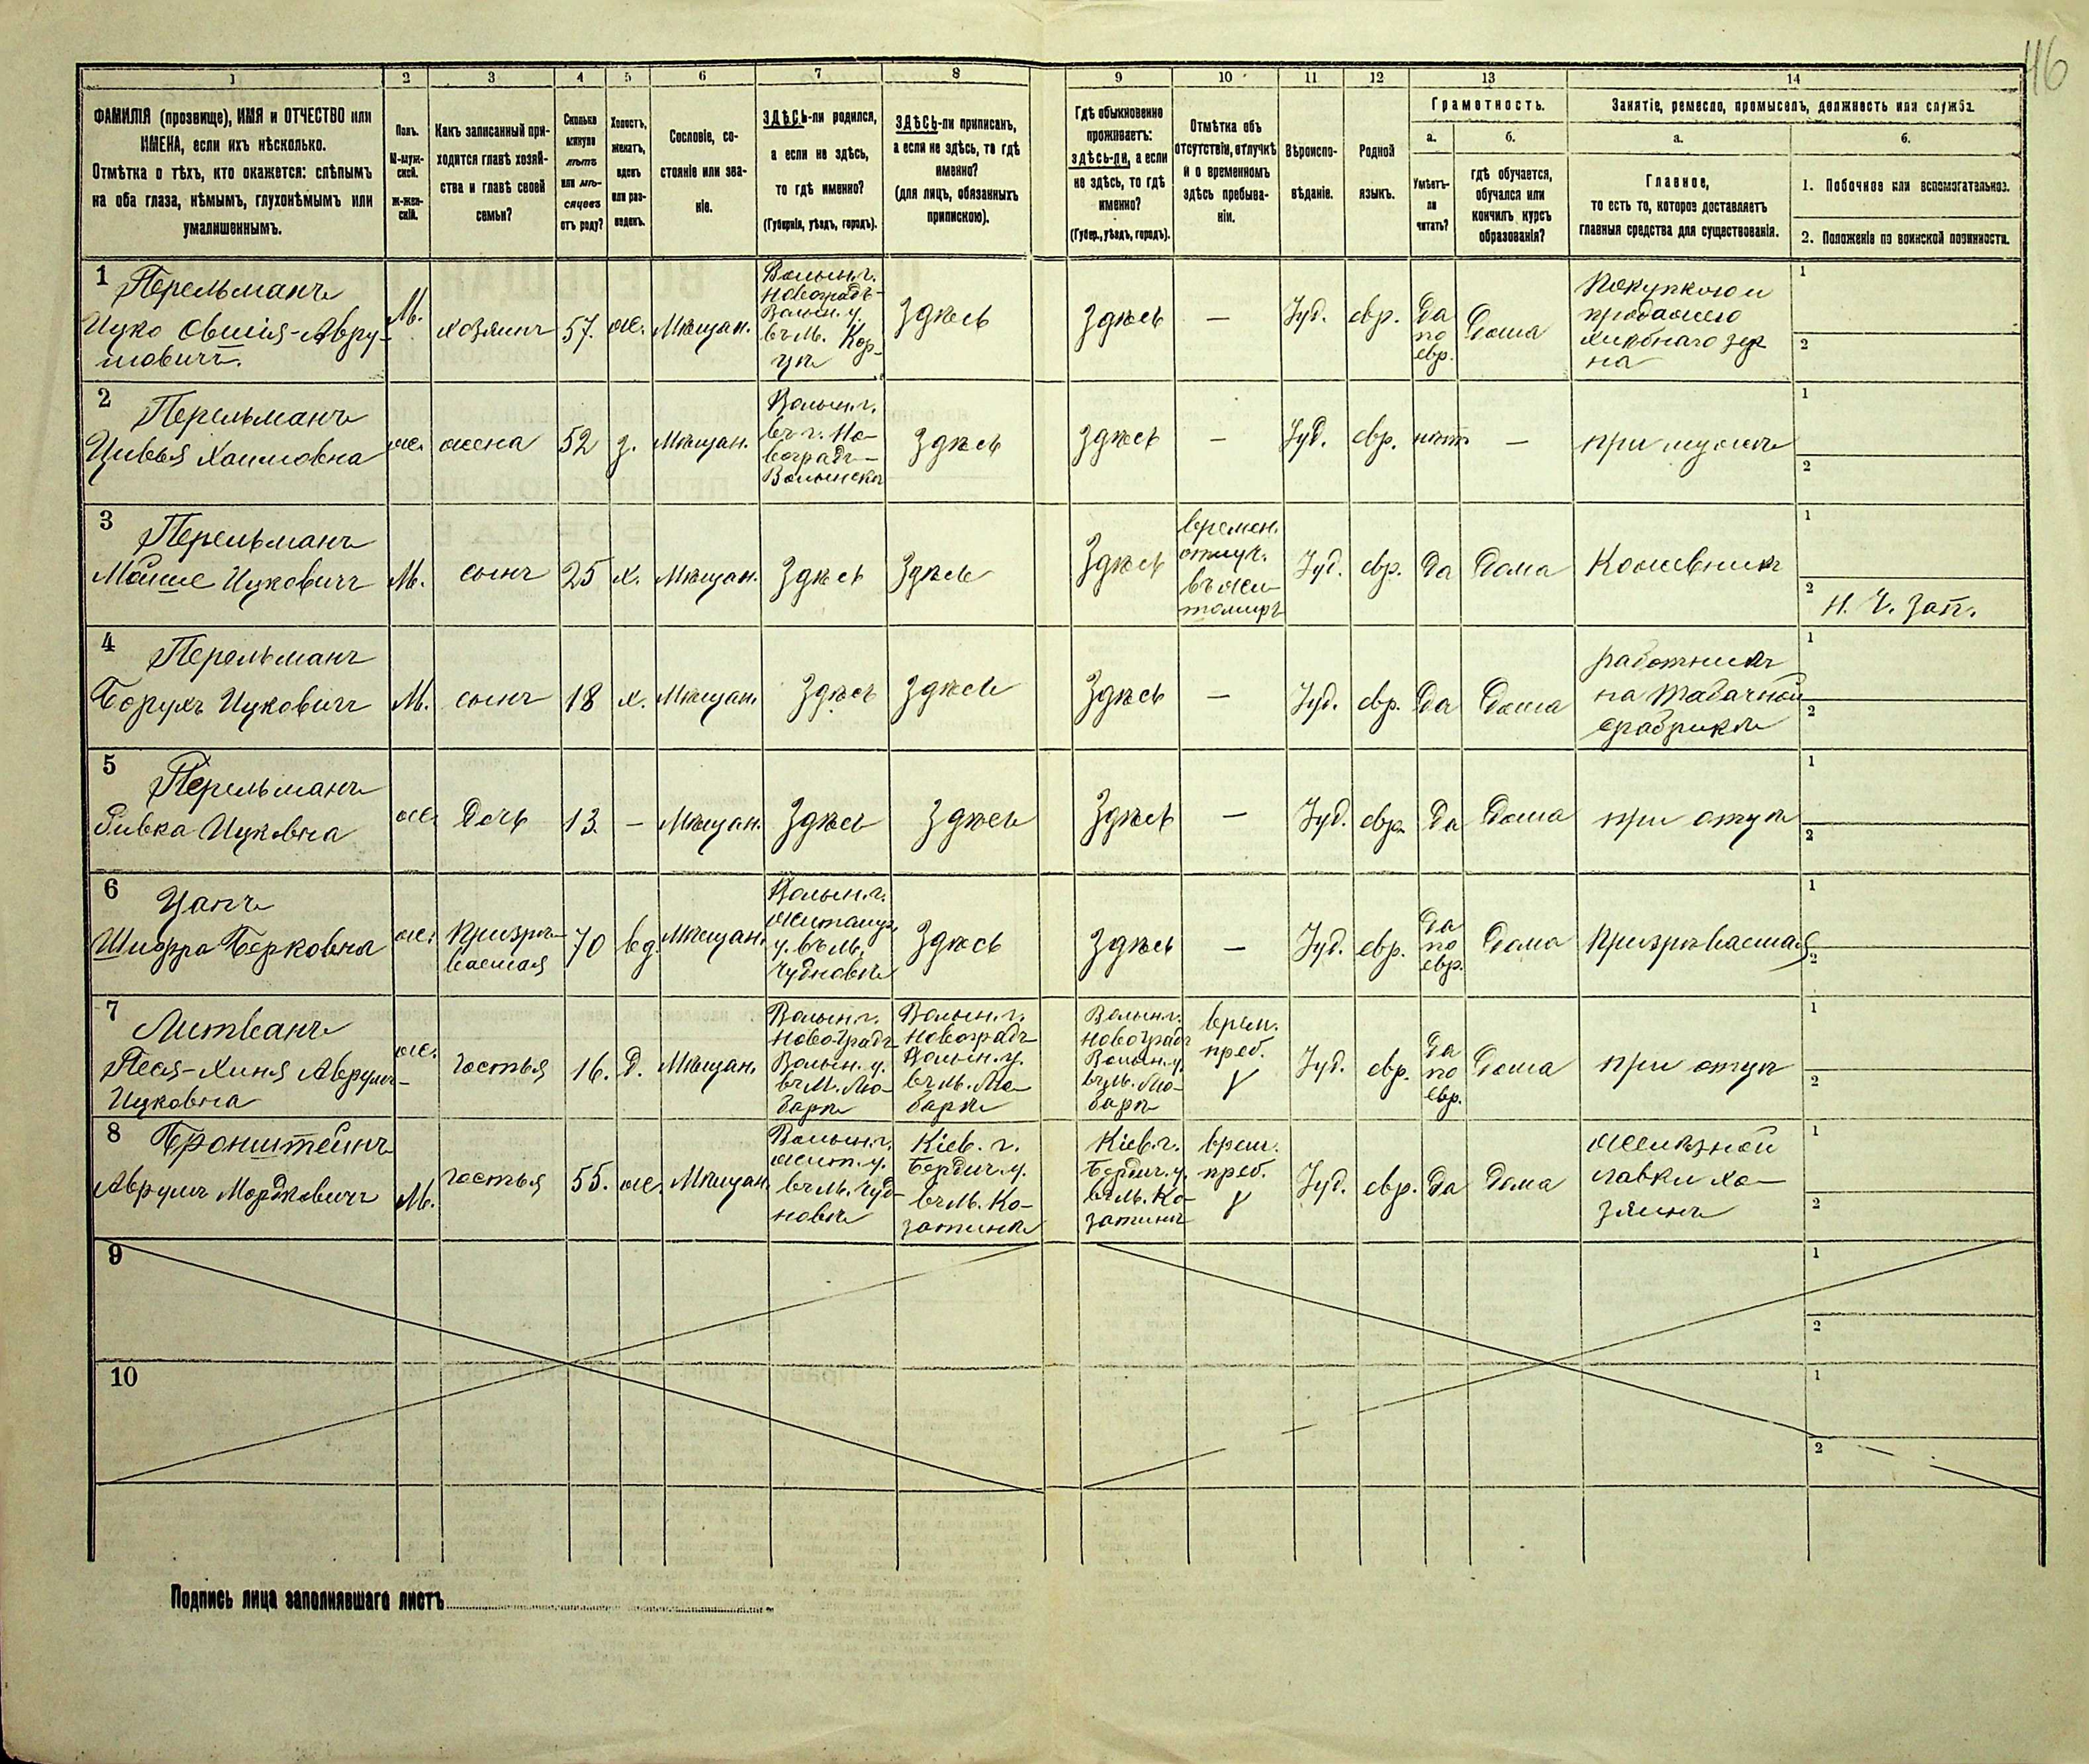 116
1 2 3 4 5 6 7 8 9 10 11 12 13 14
ФАМИЛІЯ (прозвище), ИМЯ и ОТЧЕСТВО или
ИМЕНА, если ихъ нѣсколько.
Отмѣтка о тѣхъ, кто окажется: слѣпымъ
на оба глаза, нѣмымъ, глухонѣмымъ или
умалишеннымъ.
Полъ.
М-муж-
ской.
ж-жен-
скій.
Какъ записанный при-
ходится главѣ хозяй-
ства и главѣ своей
семьи?
Сколько
минуло
лѣтъ
или мѣ-
сяцевъ
отъ роду?
Холостъ,
женатъ,
вдовъ
или раз-
веденъ.
Сословіе, со-
стояніе или зва-
ніе.
ЗДѢСЬ-ли родился,
а если не здѣсь,
то гдѣ именно?
(Губернія, уѣздъ, городъ).
ЗДѢСЬ-ли приписанъ,
а если не здѣсь, то гдѣ
именно?
(для лицъ, обязанныхъ
припискою).
Гдѣ обыкновенно
проживаетъ:
здѣсь-ли, а если
не здѣсь, то гдѣ
именно?
(Губер., уѣздъ, городъ).
Отмѣтка объ
отсутствіи, отлучкѣ
и о временномъ
здѣсь пребыва-
ніи.
Вѣроиспо-
вѣданіе.
Родной
языкъ.
Грамотность.
а.
Умѣетъ-
ли
читать?
б.
гдѣ обучается,
обучался или
кончилъ курсъ
образованія?
Занятіе, ремесло, промыселъ, должность или служба.
а.
Главное,
то есть то, которое доставляетъ
главныя средства для существованія.
б.
1. Побочное или вспомогательное.
2. Положеніе по воинской повинности.
1
Перельманъ
Ицко Овшія-Авру-
мовичъ.
М.
хозяинъ
57.
же.
Мѣщан.
Волын. г.
Новоградъ-
Волын. у.
въ м. Кор-
цѣ
Здѣсь
Здѣсь
—
Іуд.
евр.
Да
по
евр.
Дома
Покупкою и
продажею
хлѣбнаго зер
на
1
2
2
Перельманъ
Цивья Хаимовна
же.
жена
52
з.
Мѣщан.
Волын. г.
въ г. Но-
воградъ-
Волынскѣ
Здѣсь
Здѣсь
—
Іуд.
евр.
нѣт
—
при мужѣ
1
2
3
Перельманъ
Мойше Ицковичъ
М.
сынъ
25
х.
Мѣщан.
Здѣсь
Здѣсь
Здѣсь
времен.
отлуч.
въ Жи-
томирѣ
Іуд.
евр.
Да
Дома
Кожевникъ
1
2
Н. Ч. Зап.
4
Перельманъ
Борухъ Ицковичъ
М.
сынъ
18
х.
Мѣщан.
Здѣсь
Здѣсь
Здѣсь
—
Іуд.
евр.
Да
Дома
работникъ
на табачной
фабрикѣ
1
2
5
Перельманъ
Ривка Ицковна
же.
Дочь
13.
—
Мѣщан.
Здѣсь
Здѣсь
Здѣсь
—
Іуд.
евр.
Да
Дома
при отцѣ
1
2
6
Цапъ
Шифра Берковна
же.
Призрѣ-
ваемая
70
вд.
Мѣщан.
Волын. г.
Житомир.
у. въ м.
Чудновѣ
Здѣсь
Здѣсь
—
Іуд.
евр.
Да
по
евр.
Дома
Призрѣваемая
1
2
7
Литванъ
Песя-Хиня Аврумъ-
Ицковна
же.
гостья
16.
Д.
Мѣщан.
Волын. г.
Новоградъ-
Волын. у.
въ м. Лю-
барѣ
Волын. г.
Новоградъ-
Волын. у.
въ м. Лю-
барѣ
Волын. г.
Новоградъ
Волын. у.
въ м. Лю-
барѣ
врем.
преб.
Іуд.
евр.
Да
по
евр.
Дома
при отцѣ
1
2
8
Бронштейнъ
Аврумъ Мордковичъ
М.
гостья
55.
же.
Мѣщан.
Волын. г.
Жит. у.
въ м. Чуд-
новѣ
Кіев. г.
Бердич. у.
въ м. Ко-
затинѣ
Кіев. г.
Бердич. у.
въ м. Ко-
затинѣ
врем.
преб.
Іуд.
евр.
Да
Дома
желѣзной
лавки хо-
зяинъ
1
2
9
1
2
10
1
2
Подпись лица заполнявшаго листъ